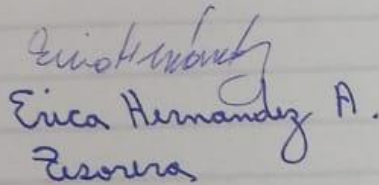 Erica Hernández
Erica Hernandez A.
Tesorera